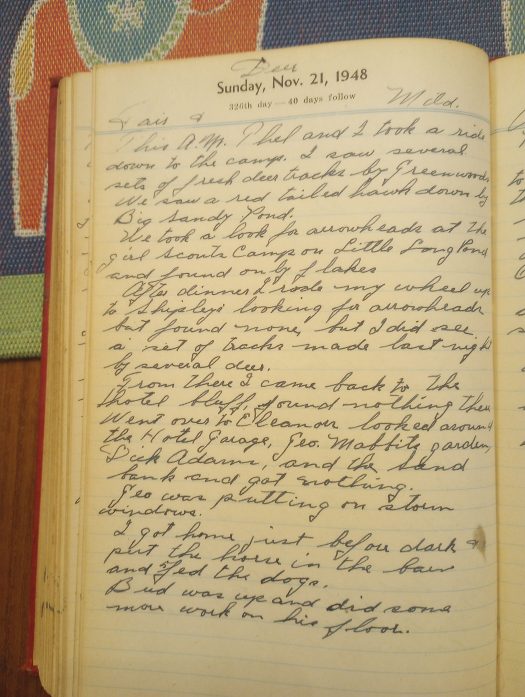 Deer
Sunday, Nov. 21, 1948
326th day — 40 days follow
Fair & Mild.
This A.M. Thel and I took a ride
down to the camp. I saw several
sets of fresh deer tracks by Greenwoods
We saw a red tailed hawk down by
Big Sandy Pond.
We took a look for arrowheads at the
girl Scouts Camps on Little Long Pond
and found only flakes
After dinner I rode my wheel up
to Shipleys looking for arrowheads
but found none, but I did see
a set of tracks made last night
by several deer.
From there I came back to the
hotel bluff, found nothing there
Went over to Eleanor looked around
the Hotel Garage, Geo. Mabbitts garden,
Dick Adams, and the sand
bank and got nothing.
Geo was putting on storm
windows.
I got home just before dark &
put the horse in the barn
and fed the dogs.
Bud was up and did some
more work on his floor.